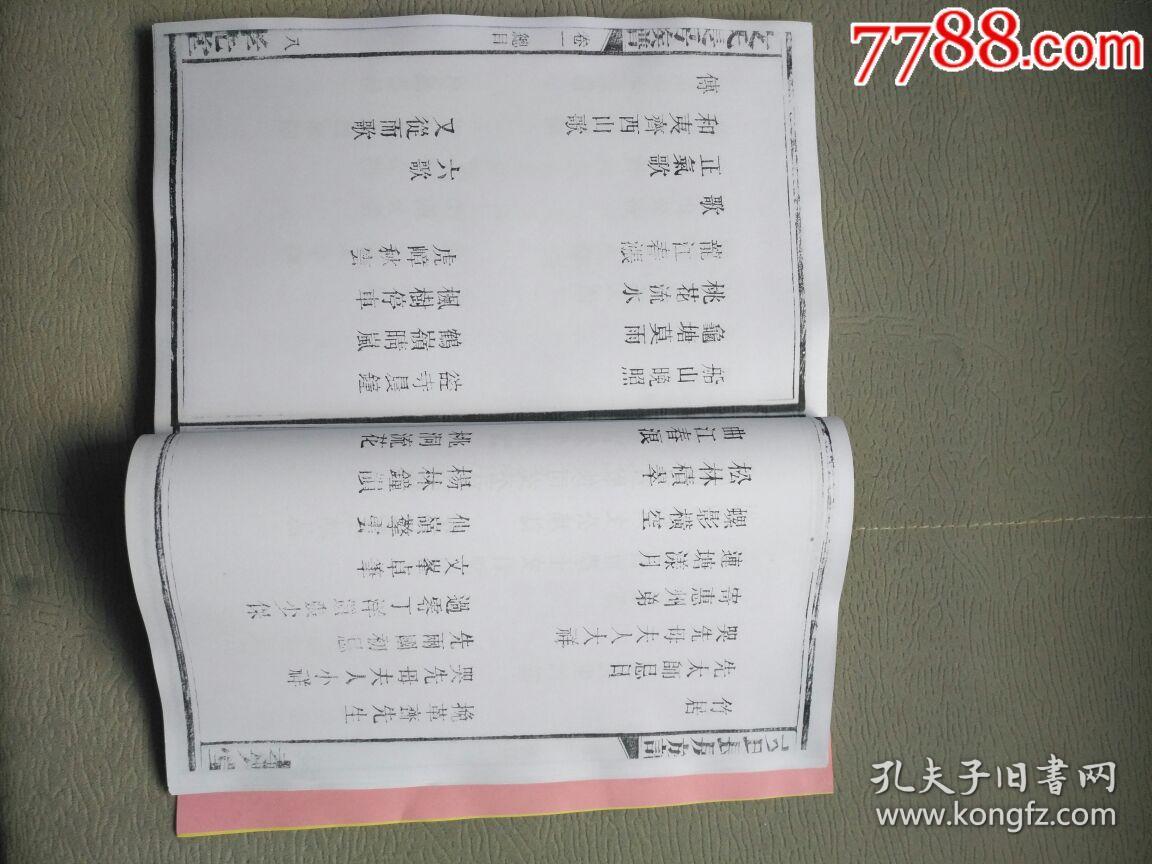 竹居
挽革齋先生
先太師忌日
哭先母夫人小祥
哭先母夫人大祥
先兩國初忌
寄惠州弟
過零丁洋
蓮塘漾月
文峯卓筆
螺影橫空
仙嶺擎雲
松林積翠
楊林鐘韻
曲江春浪
桃洞流花
船山晚照
寺晨鐘
龜塘莫雨
鶴嶺晴嵐
桃花流水
楓樹停車
龍江春漲
虎嶂秋雲
歌
正氣歌
六歌
和夷齊西山歌
又從而歌
傳
卷一
總目
八
7788.com
孔夫子旧书网
www.kongfz.com